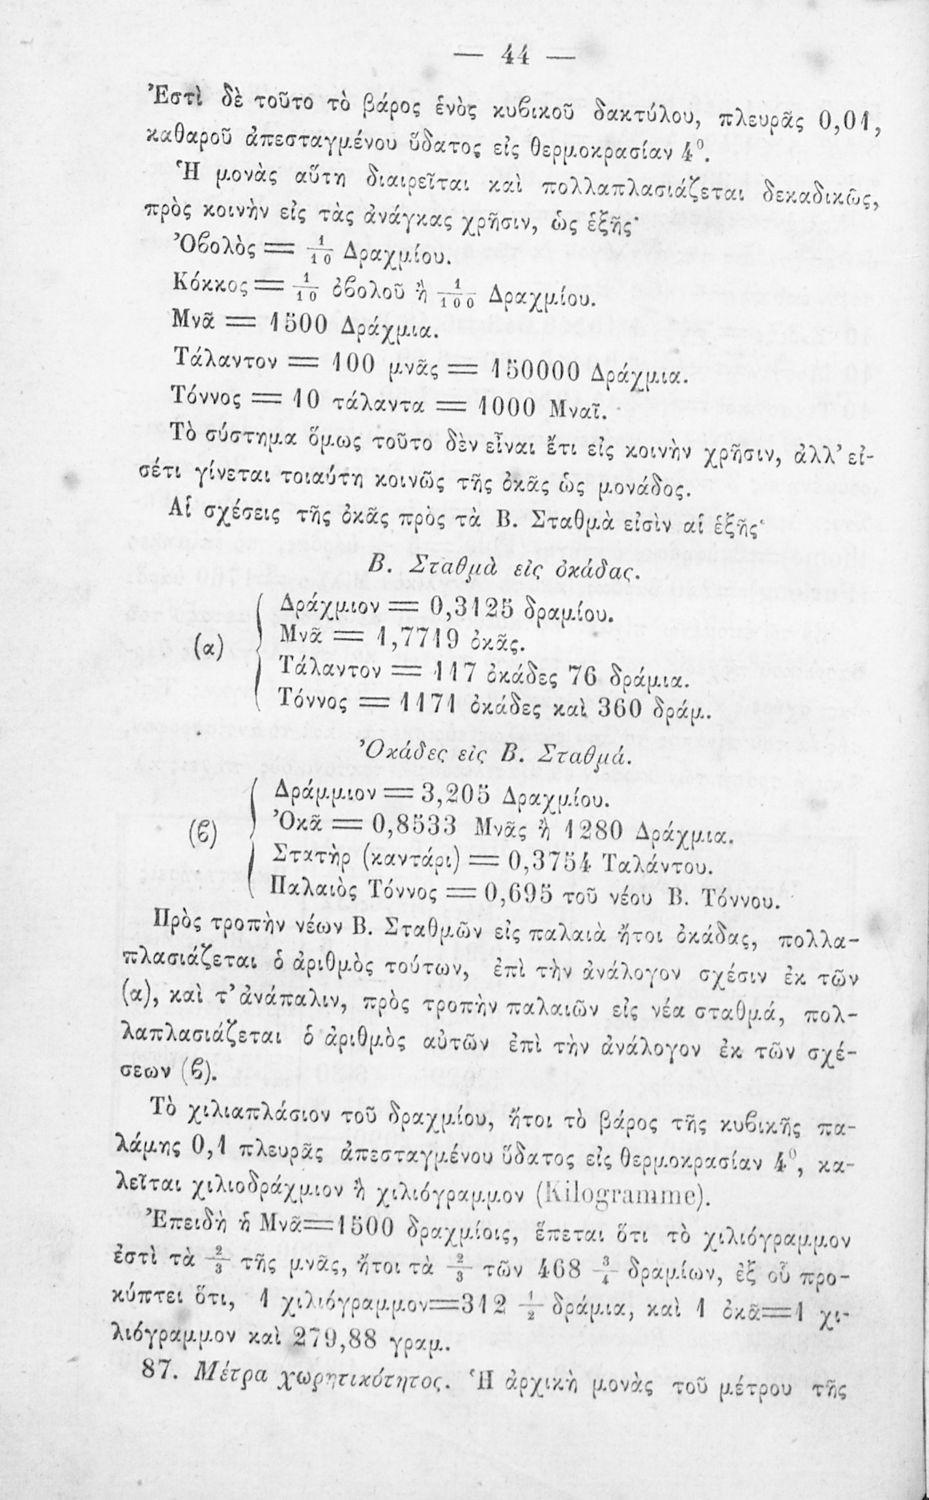 — 44 —
Ἐστὶ δὲ τοῦτο τὸ βάρος ἑνὸς κυβικοῦ δακτύλου, πλευρᾶς 0,01,
καθαροῦ ἀπεσταγμένου ὕδατος εἰς θερμοκρασίαν 4⁰.
Ἡ μονὰς αὕτη διαιρεῖται καὶ πολλαπλασιάζεται δεκαδικῶς,
πρὸς κοινὴν εἰς τὰς ἀνάγκας χρῆσιν, ὡς ἑξῆς·
Ὀβολὸς = 1/10 Δραχμίου.
Κόκκος = 1/10 ὀβολοῦ ἢ 1/100 Δραχμίου.
Μνᾶ = 1500 Δράχμια.
Τάλαντον = 100 μνᾶς = 150000 Δράχμια.
Τόννος = 10 τάλαντα = 1000 Μναῖ.
Τὸ σύστημα ὅμως τοῦτο δὲν εἶναι ἔτι εἰς κοινὴν χρῆσιν, ἀλλ’ εἰ-
σέτι γίνεται τοιαύτη κοινῶς τῆς ὀκᾶς ὡς μονάδος.
Αἱ σχέσεις τῆς ὀκᾶς πρὸς τὰ Β. Σταθμὰ εἰσὶν αἱ ἑξῆς·
Β. Σταθμὰ εἰς ὀκάδας.
(α) Δράχμιον = 0,3125 δραμίου.
Μνᾶ = 1,7719 ὀκᾶς.
Τάλαντον = 117 ὀκάδες 76 δράμια.
Τόννος = 1171 ὀκάδες καὶ 360 δράμ.
Ὀκάδες εἰς Β. Σταθμά.
(β) Δράμμιον = 3,205 Δραχμίου.
Ὀκᾶ = 0,8533 Μνᾶς ἢ 1280 Δράχμια.
Στατὴρ (καντάρι) = 0,3754 Ταλάντου.
Παλαιὸς Τόννος = 0,695 τοῦ νέου Β. Τόννου.
Πρὸς τροπὴν νέων Β. Σταθμῶν εἰς παλαιὰ ἤτοι ὀκάδας, πολλα-
πλασιάζεται ὁ ἀριθμὸς τούτων, ἐπὶ τὴν ἀνάλογον σχέσιν ἐκ τῶν
(α), καὶ τ’ ἀνάπαλιν, πρὸς τροπὴν παλαιῶν εἰς νέα σταθμά, πολ-
λαπλασιάζεται ὁ ἀριθμὸς αὐτῶν ἐπὶ τὴν ἀνάλογον ἐκ τῶν σχέ-
σεων (β).
Τὸ χιλιαπλάσιον τοῦ δραχμίου, ἤτοι τὸ βάρος τῆς κυβικῆς πα-
λάμης 0,1 πλευρᾶς ἀπεσταγμένου ὕδατος εἰς θερμοκρασίαν 4⁰, κα-
λεῖται χιλιοδράχμιον ἢ χιλιόγραμμον (Kilogramme).
Ἐπειδὴ ἡ Μνᾶ=1500 δραχμίοις, ἕπεται ὅτι τὸ χιλιόγραμμον
ἐστὶ τὰ 2/3 τῆς μνᾶς, ἤτοι τὰ 2/3 τῶν 468 3/4 δραμίων, ἐξ οὗ προ-
κύπτει ὅτι, 1 χιλιόγραμμον=312 1/2 δράμια, καὶ 1 ὀκᾶ=1 χι-
λιόγραμμον καὶ 279,88 γραμ.
87. Μέτρα χωρητικότητος. Ἡ ἀρχικὴ μονὰς τοῦ μέτρου τῆς